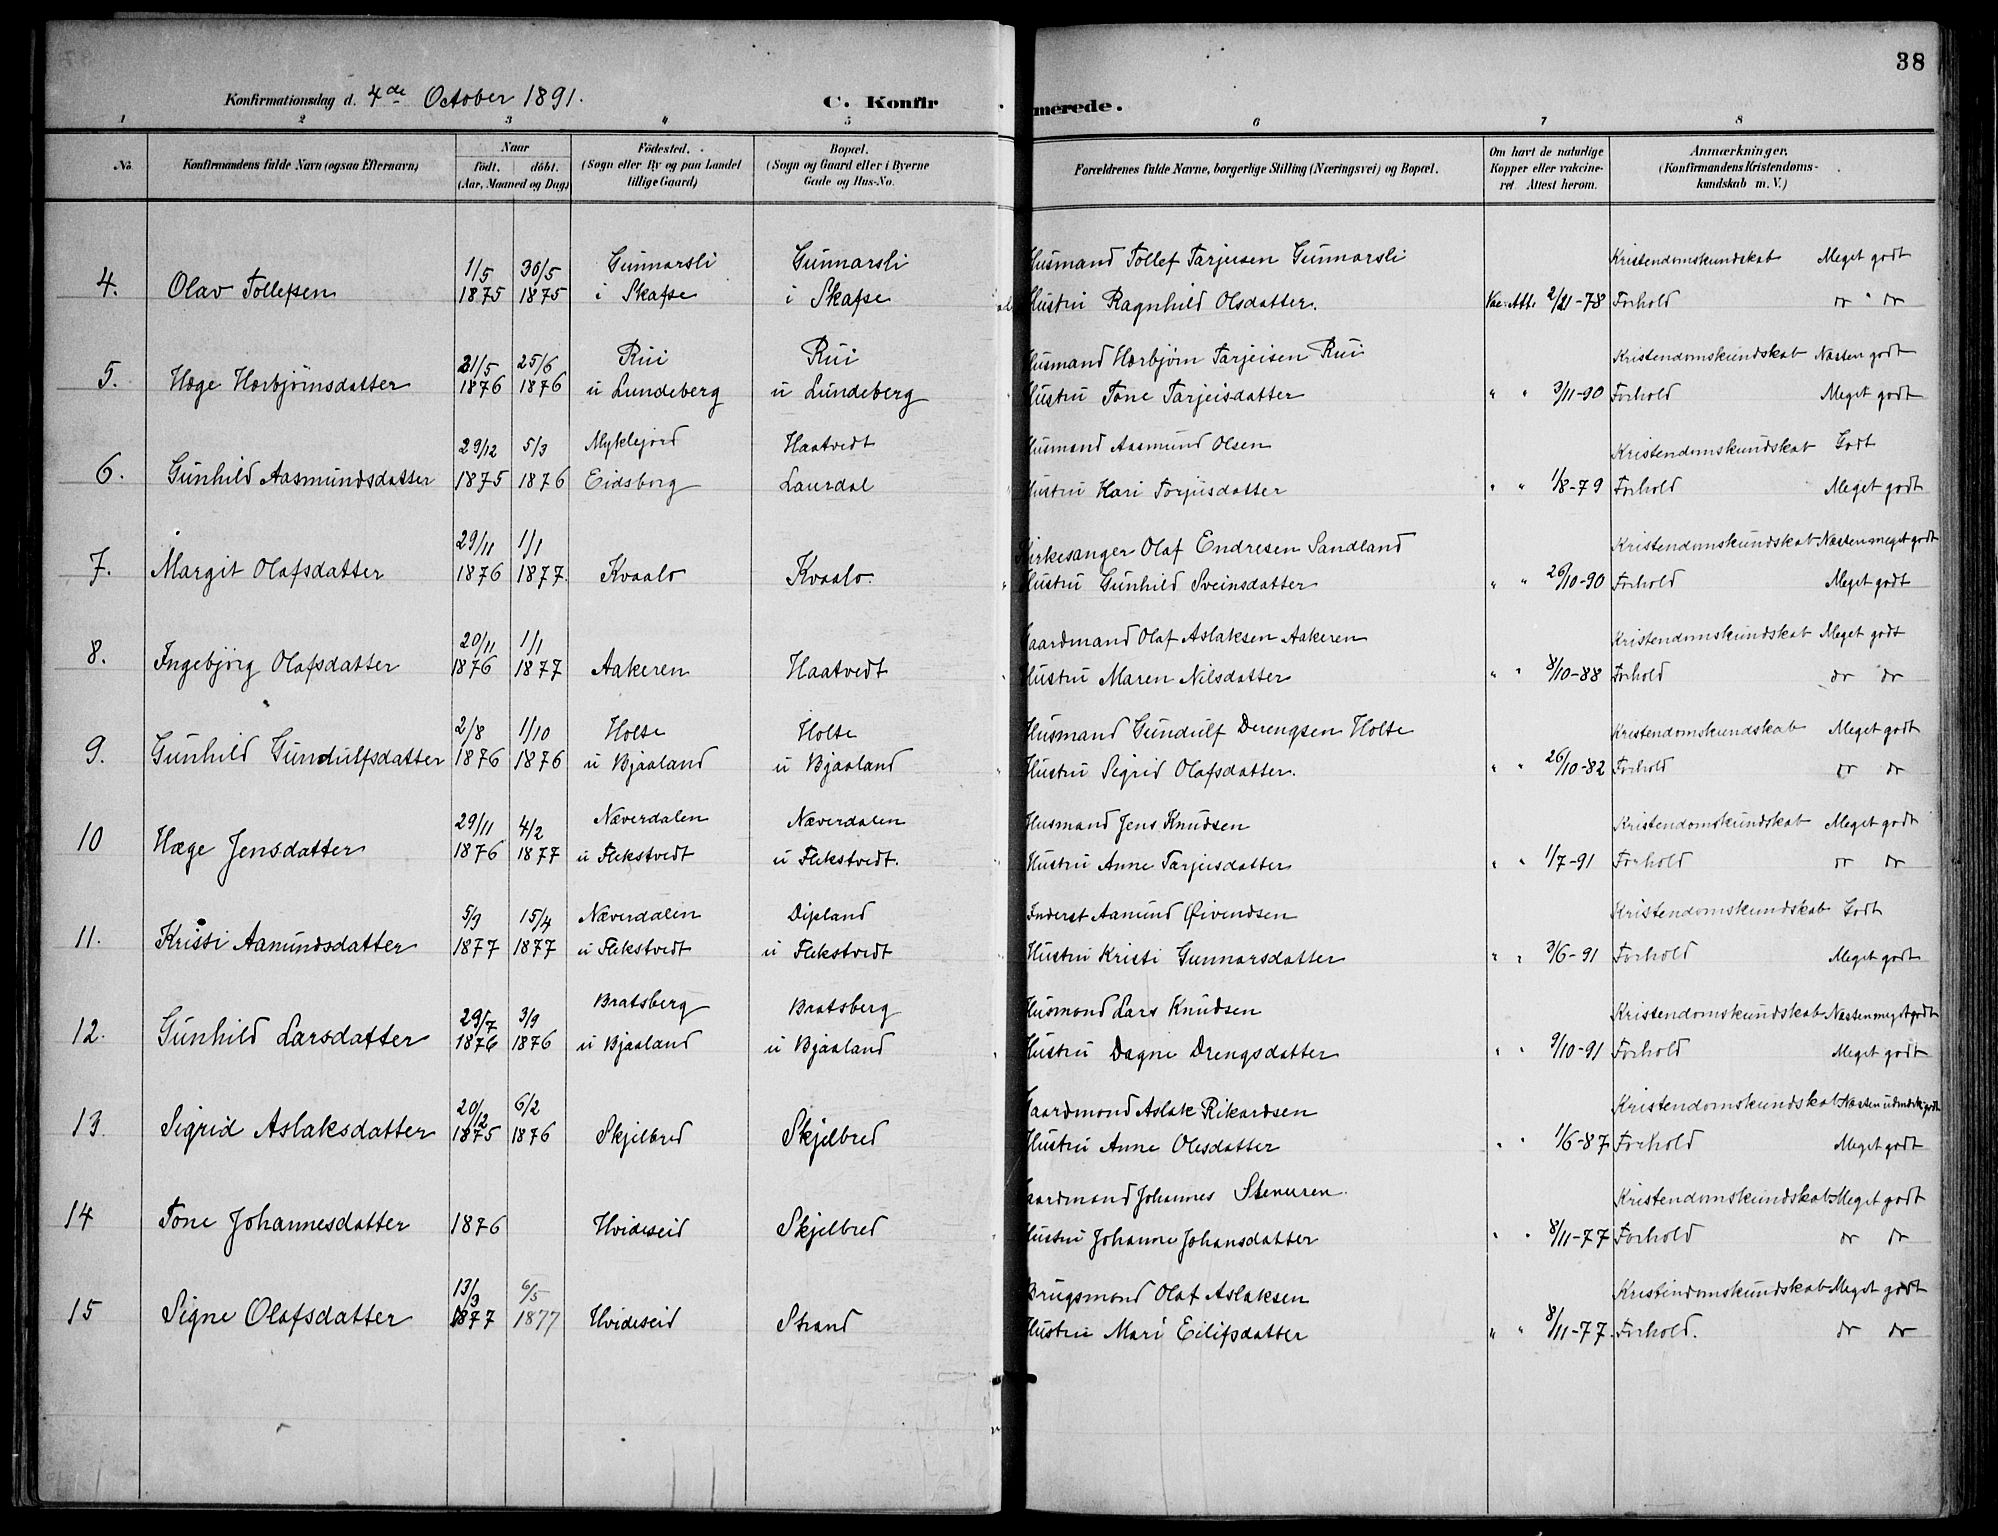 38
Konfirmationsdag d. 4de October 1891.
C. Konfirmerede.
1 2 3 4 5 6 7 8
No. Konfirmandens fulde Navn (ogsaa Efternavn) Naar født. døbt. (Aar, Maaned og Dag) Fødested. (Sogn eller By og paa Landet tillige Gaard) Bopæl. (Sogn og Gaard eller i Byerne Gade og Hus-No. Forældrenes fulde Navne, borgerlige Stilling (Næringsvei) og Bopæl. Om havt de naturlige Kopper eller vakcineret Attest herom. Anmærkninger. (Konfirmandens Kristendomskundskab m. V.)
1/5 30/5 Gunnarsli Gunnarsli Husmand Tollef Tarjeisen Gunnarsli Kristendomskundskab Meget godt
4. Olav Tollefsen 1875 1875 i Skafse i Skafse Hustru Ragnhild Olsdatter. Vac. Att. 2/21-78 Forhold do " do
21/5 25/6 Rui Rui Husmand Hærbjørn Tarjeisen Rui Kristendomskundskab Næsten godt
5. Hæge Hærbjørnsdatter 1876 1876 u Lundeberg u Lundeberg Hustru Tone Tarjeisdatter " " 3/11-90 Forhold Meget godt
29/12 5/3 Myklejord Haatvedt Husmand Aasmund Olsen Kristendomskundskab Godt
6. Gunhild Aasmundsdatter 1875 1876 Eidsborg Laurdal Hustru Kari Torjusdatter " " 1/8-79 Forhold Meget godt
29/11 1/1 Kirkesanger Olaf Endresen Sandland Kristendomskundskab Næsten meget godt
7. Margit Olafsdatter 1876 1877. Kvaalo Kvaalo. Hustru Gunhild Sveinsdatter " " 26/10-90 Forhold Meget godt
20/11 1/1 Gaardmand Olaf Aslaksen Aakeren Kristendomskundskab Meget godt
8. Ingebjørg Olafsdatter 1876 1877 Aakeren Haatvedt Hustru Maren Nilsdatter " " 8/10-88 Forhold do do
2/8 1/10 Holte Holte Husmand Gundulf Derengsen Holte Kristendomskundskab Meget godt
9. Gunhild Gundulfsdatter 1876 1876 u Bjaaland u Bjaaland Hustru Sigrid Olafsdatter. " " 26/10-82 Forhold do do
29/11 4/2 Næverdalen Næverdalen Husmand Jens Knudsen Kristendomskundskab Meget godt
10 Hæge Jensdatter 1876 1877 u Flekstvedt u Flekstvedt. Hustru Anne Tarjeisdatter " " 1/7-91 Forhold do do
5/9 15/4 Næverdalen Dipland Inderst Aamund Øivendsen Kristendomskundskab Godt
11. Kristi Aamundsdatter 1877 1877 u Flekstvedt u Flekstvedt Hustru Kristi Gunnarsdatter " " 3/6-91 Forhold Meget godt
29/7 3/9 Bratsberg Bratsberg Husmand Lars Knudsen Kristendomskundskab Næsten meget godt
12. Gunhild Larsdatter 1876 1876 u Bjaaland u Bjaaland Hustru Dagne Drengsdatter " " 9/10-91 Forhold Meget godt
20/12 6/2 Gaardmand Aslak Rikardsen Kristendomskundskab Næsten udmærket godt
13. Sigrid Aslaksdatter 1875 1876 Skjelbred Skjelbred Hustru Anne Olesdatter " " 1/6-87 Forhold Meget godt
Gaardmand Johannes Stenuren. Kristendomskundskab Meget godt
14 Tone Johannesdatter 1876 Hvideseid Skjelbred Hustru Johanne Johansdatter " " 8/11-77 Forhold do do
13/3 6/5 Brugsmand Olaf Aslaksen Kristindomskundskab Meget godt
15 Signe Olafsdatter 1877 1877 Hvideseid Strand Hustru Mari Eilifsdatter " " 8/11-77. Forhold. do do